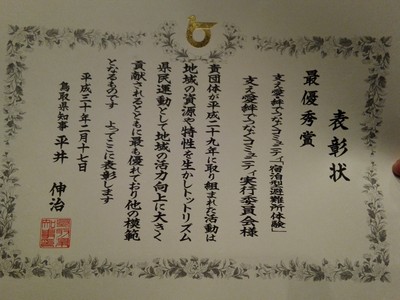 表彰状
最優秀賞
支え愛絆でつながるコミュニティ「宿泊型避難所体験」
支え愛絆でつながるコミュニティ実行委員会様
貴団体が平成二十九年に取り組まれた活動は
地域の資源や特性を生かしトットリズム
県民運動として地域の活力向上に大きく
貢献されるとともに最も優れており他の模範
となるものです よってここに表彰します
平成三十年二月十七日
鳥取県知事 平井 伸治